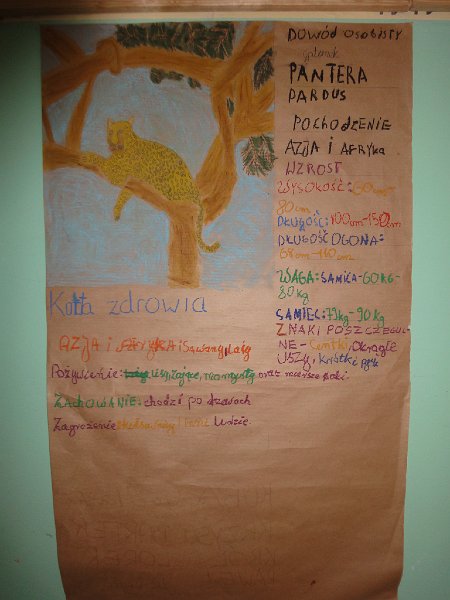 DOWÓD OSOBISTY
gatunek
PANTERA
PARDUS
POCHODZENIE
AZJA I AFRYKA
WZROST
WYSOKOŚĆ: 60cm-
80cm
DŁUGOŚĆ: 100cm-150cm
DŁUGOŚĆ OGONA:
68cm-110cm
WAGA: SAMICA-60KG-
80kg
SAMIEC: 79kg-90kg
ZNAKI POSZCZEGUL-
NE- Centki, okrągłe
uszy, krótki
Karta zdrowia
AZJA i Afryka i Sawany, lasy
Pożywienie: małpy, oraz mniejsze
Zachowanie: chodzi po drzewach
Zagrożenie ludzie.